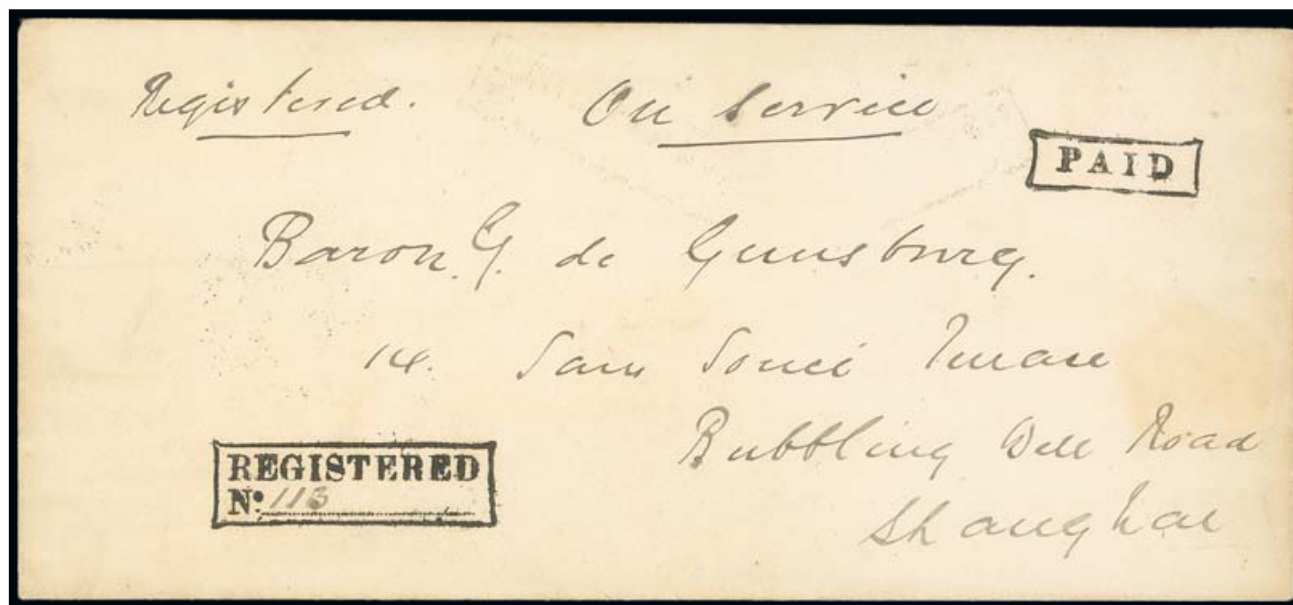 Registered. On Service
PAID
Baron G. de Gunsburg.
14. Sans Souci Terrace
Bubbling Well Road
Shanghai
REGISTERED
Nº 113